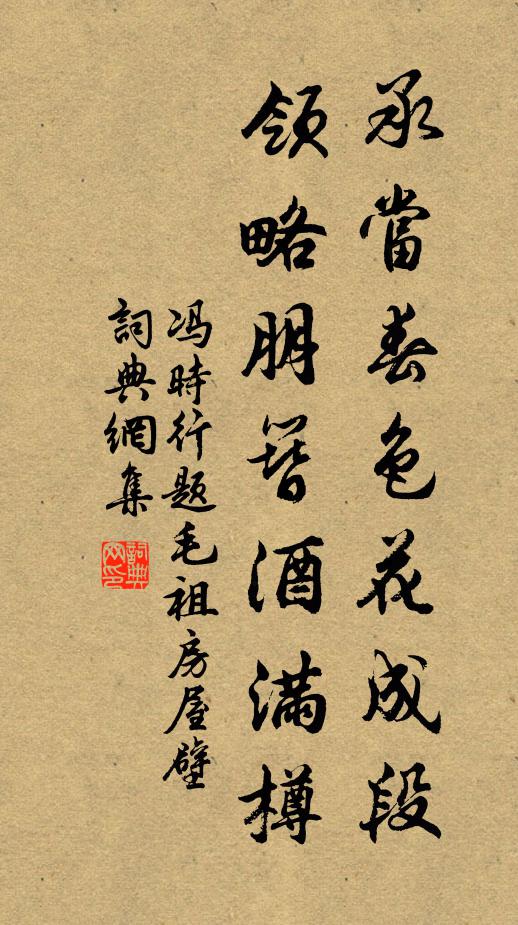 承當春色花成段
領略朋簪酒滿樽
冯時行題毛祖房屋壁
詞典網集
詞典網印